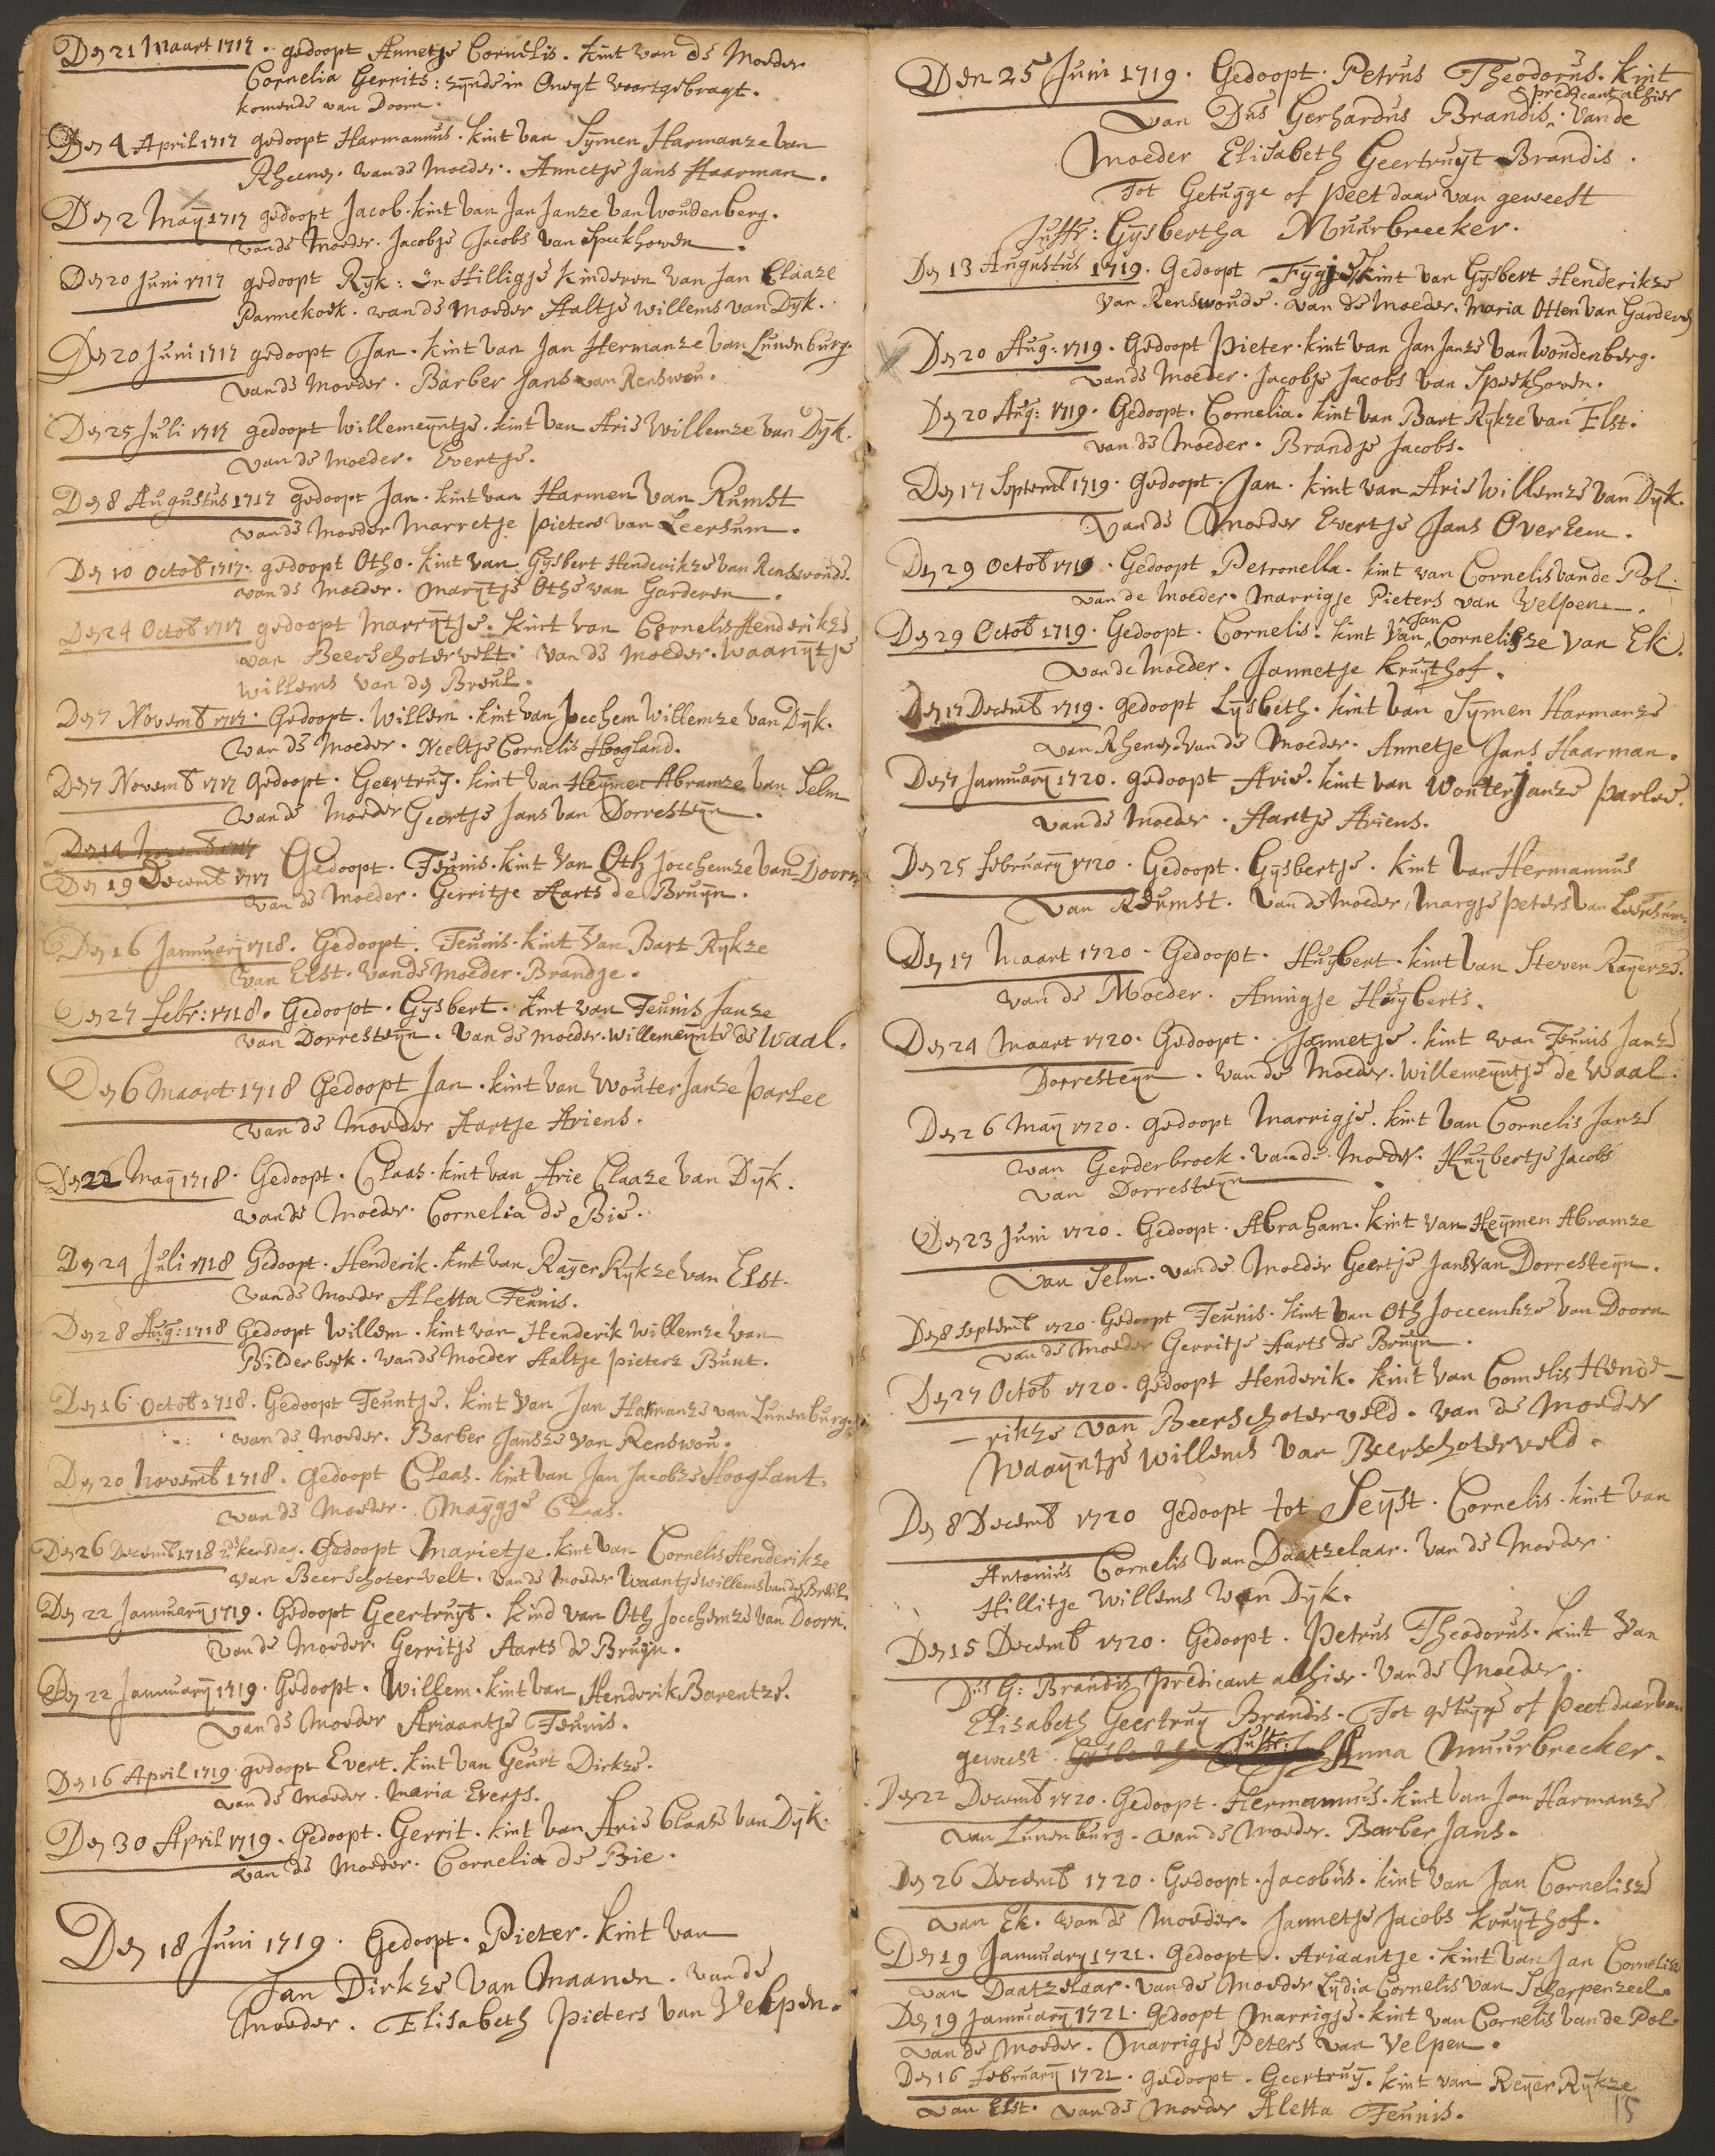 Den 21 Maart 1717. gedoopt Annetje Cornelis. kint van de Moeder
Cornelia Gerrits: zijnde in Onegt voortgebragt.
komende van Doorn.
Den 4 April 1717 gedoopt Harmannus. kint van Sijmen Harmanze van
Rheenen. van de Moeder. Annetje Jans Haarman.
Den 2 Maij 1717 gedoopt Jacob. kint van Jan Janze van Woudenberg.
van de Moeder. Jacobje Jacobs van Speckhoven.
Den 20 Juni 1717 gedoopt Rijk: en Hilligje kinderen van Jan Claaze
Pannekoek. van de Moeder Aaltje Willems van Dijk.
Den 20 Juni 1717 gedoopt Jan. kint van Jan Hermanze van Lunenburg.
van de Moeder. Barber Jans van Renswou.
Den 25 Juli 1717 gedoopt Willemeijntje. kint van Arie Willemze van Dijk.
van de Moeder. Evertje.
Den 8 Augustus 1717 gedoopt Jan. kint van Harmen van Rumst
van de Moeder Marretje pieters van Leersum.
Den 10 Octob 1717. gedoopt Otho. kint van Gijsbert Henderikze van Renswoude.
van de Moeder. Marijtje Othe van Garderen.
Den 24 Octob 1717 gedoopt Marrijtje. kint van Cornelis Henderikze
van Beerschotervelt. van de Moeder. Waanijtje
Willems van den Breul.
Den 7 Novemb 1717. Gedoopt. Willem. kint van Jocchem Willemze van Dijk.
van de Moeder. Neeltje Cornelis Hoogland.
Den 7 Novemb 1717 Gedoopt. Geertruij. kint van Heijmen Abramze van Selm
van de Moeder Geertje Jans van Dorresteijn.
Den 14 Novemb 1717
Den 19 Decemb 1717 Gedoopt. Teunis. kint van Oth Jocchemze van Doorn
van de Moeder. Gerritje Aarts de Bruijn.
Den 16 Jannuarij 1718. Gedoopt. Teunis. kint van Bart Rijkze
van Elst. van de Moeder. Brandje.
Den 27 febr: 1718. Gedoopt. Gijsbert. kint van Teunis Janze
van Dorresteijn. van de Moeder. Willemeijnte de Waal.
Den 6 Maart 1718 Gedoopt Jan. kint van Wouter Janze parlee
van de Moeder Aartje Ariens.
Den 22 Maij 1718. Gedoopt. Claas. kint van Arie Claaze van Dijk.
van de Moeder. Cornelia de Bie.
Den 24 Juli 1718 Gedoopt. Henderik. kint van Raijer Rijkze van Elst.
van de Moeder Aletta Teunis.
Den 28 Aug: 1718 Gedoopt Willem. kint van Henderik Willemze van
Bilderbeek. van de Moeder Aaltje pieterz Bunt.
Den 16 Octob 1718. Gedoopt Teuntje. kint van Jan Harmanze van Lunenburg.
van de Moeder. Barber Janske van Renswou.
Den 20 Novemb 1718. Gedoopt Claas. kint van Jan Jacobze Hooglant.
van de Moeder. Maijgje Claas.
Den 26 Decemb 1718 2de kersdag. Gedoopt Marietje. kint van Cornelis Henderikze
van Beerschotervelt. van de Moeder Waantje Willems van den Breul.
Den 22 Jannuarij 1719. Gedoopt Geertruijt. kind van Oth Jocchemze van Doorn.
van de Moeder. Gerritje Aarts de Bruijn.
Den 22 Jannuarij 1719. Gedoopt. Willem. kint van Henderik Barentze.
van de Moeder Ariaantje Teunis.
Den 16 April 1719. gedoopt Evert. kint van Geurt Dirkze.
van de Moeder. Maria Everts.
Den 30 April 1719. Gedoopt. Gerrit. kint van Arie Claaze van Dijk.
van de Moeder. Cornelia de Bie.
Den 18 Juni 1719. Gedoopt. Pieter. kint van
Jan Dirkze van Maanen. van de
Moeder. Elisabeth pieters van Velpen.
Den 25 Juni 1719. Gedoopt. Petrus Theodorus. kint
predicant alhier
van Dus Gerhardus Brandis. van de
Moeder Elisabeth Geertruijt Brandis.
Tot Getuijge of peet daar van geweest
Juffr: Gijsbertha Muurbrecker.
Den 13 Augustus 1719. Gedoopt Fijgje kint van Gijsbert Henderikze
van Renswoude. van de Moeder. Maria Otten van Garderen
Den 20 Aug: 1719. Gedoopt pieter. kint van Jan Janze van Woudenberg.
van de Moeder. Jacobje Jacobs van Speckhoven.
Den 20 Aug: 1719. Gedoopt. Cornelia. kint van Bart Rijkze van Elst.
van de Moeder. Brandje Jacobs.
Den 17 Septemb 1719. Gedoopt. Jan. kint van Arie Willemze van Dijk.
van de Moeder Evertje Jans Overhem.
Den 29 Octob 1719. Gedoopt Petronella. kint van Cornelis van de Pol.
van de Moeder. Marrigje Pieters van Velpen.
Jan
Den 29 Octob 1719. Gedoopt. Cornelis. kint van Cornelisze van Ek.
van de Moeder. Jannetje kruijthof.
Den 17 Decemb 1719. gedoopt Lijsbeth. kint van Sijmen Harmanze
van Rhenen. van de Moeder. Annetje Jans Haarman.
Den 7 Jannuarij 1720. gedoopt Arie. kint van Wouter Janze parlee.
van de Moeder. Aartje Ariens.
Den 25 februarij 1720. Gedoopt. Gijsbertje. kint van Hermannus
van Reumst. van de Moeder, Margje peters van Leersum.
Den 17 Maart 1720. Gedoopt. Huijbert. kint van Steven Raijerze.
van de Moeder. Aningje Huijberts.
Den 24 Maart 1720. Gedoopt. Jannetje. kint van Teunis Janze
Dorresteijn. van de Moeder. Willemeijntje de Waal.
Den 26 Maij 1720. gedoopt Marrigje. kint van Cornelis Janze
van Gerderbroek. van de Moeder. Huijbertje Jacobs
van Dorresteijn
Den 23 Juni 1720. Gedoopt. Abraham. kint van Heijmen Abramze
van Selm. van de Moeder Geertje Jans van Dorresteijn.
Den 8 Septemb 1720. Gedoopt Teunis. kint van Oth Joccemhze van Doorn
van de Moeder Gerritje Aarts de Bruijn.
Den 27 Octob 1720. Gedoopt Henderik. kint van Cornelis Hende-
-rikze van Beerschoterveld. van de Moeder
Waaijntje Willems van Beerschoterveld.
Den 8 Decemb 1720 gedoopt tot Seijst. Cornelis. kint van
Antonius Cornelis van Daatzelaar. van de Moeder
Hillitje Willems van Dijk.
Den 15 Decemb 1720. Gedoopt. Petrus Theodorus. kint van
Dus G: Brandis predicant alhier. van de Moeder.
Elisabeth Geertruij Brandis. Tot getuijge of peet daar van
Juffr:
geweest. Anna Muurbrecker.
Den 22 Decemb 1720. Gedoopt. Hermannus. kint van Jan Harmanze
van Lunenburg. van de Moeder. Barber Jans.
Den 26 Decemb 1720. Gedoopt. Jacobus. kint van Jan Cornelisze
van Ek. van de Moeder. Jannetje Jacobs kruijthof.
Den 19 Jannuarij 1721. Gedoopt. Ariaantje. kint van Jan Cornelisze
van Daatzelaar. van de Moeder Lijdia Cornelis van Scherpenzeel.
Den 19 Jannuarij 1721. Gedoopt Marrigje. kint van Cornelis van de Pol.
van de Moeder. Marrigje Peters van Velpen.
Den 16 februarij 1721. Gedoopt. Geertruij. kint van Reijer Rijkze
van Elst. van de Moeder Aletta Teunis.
15